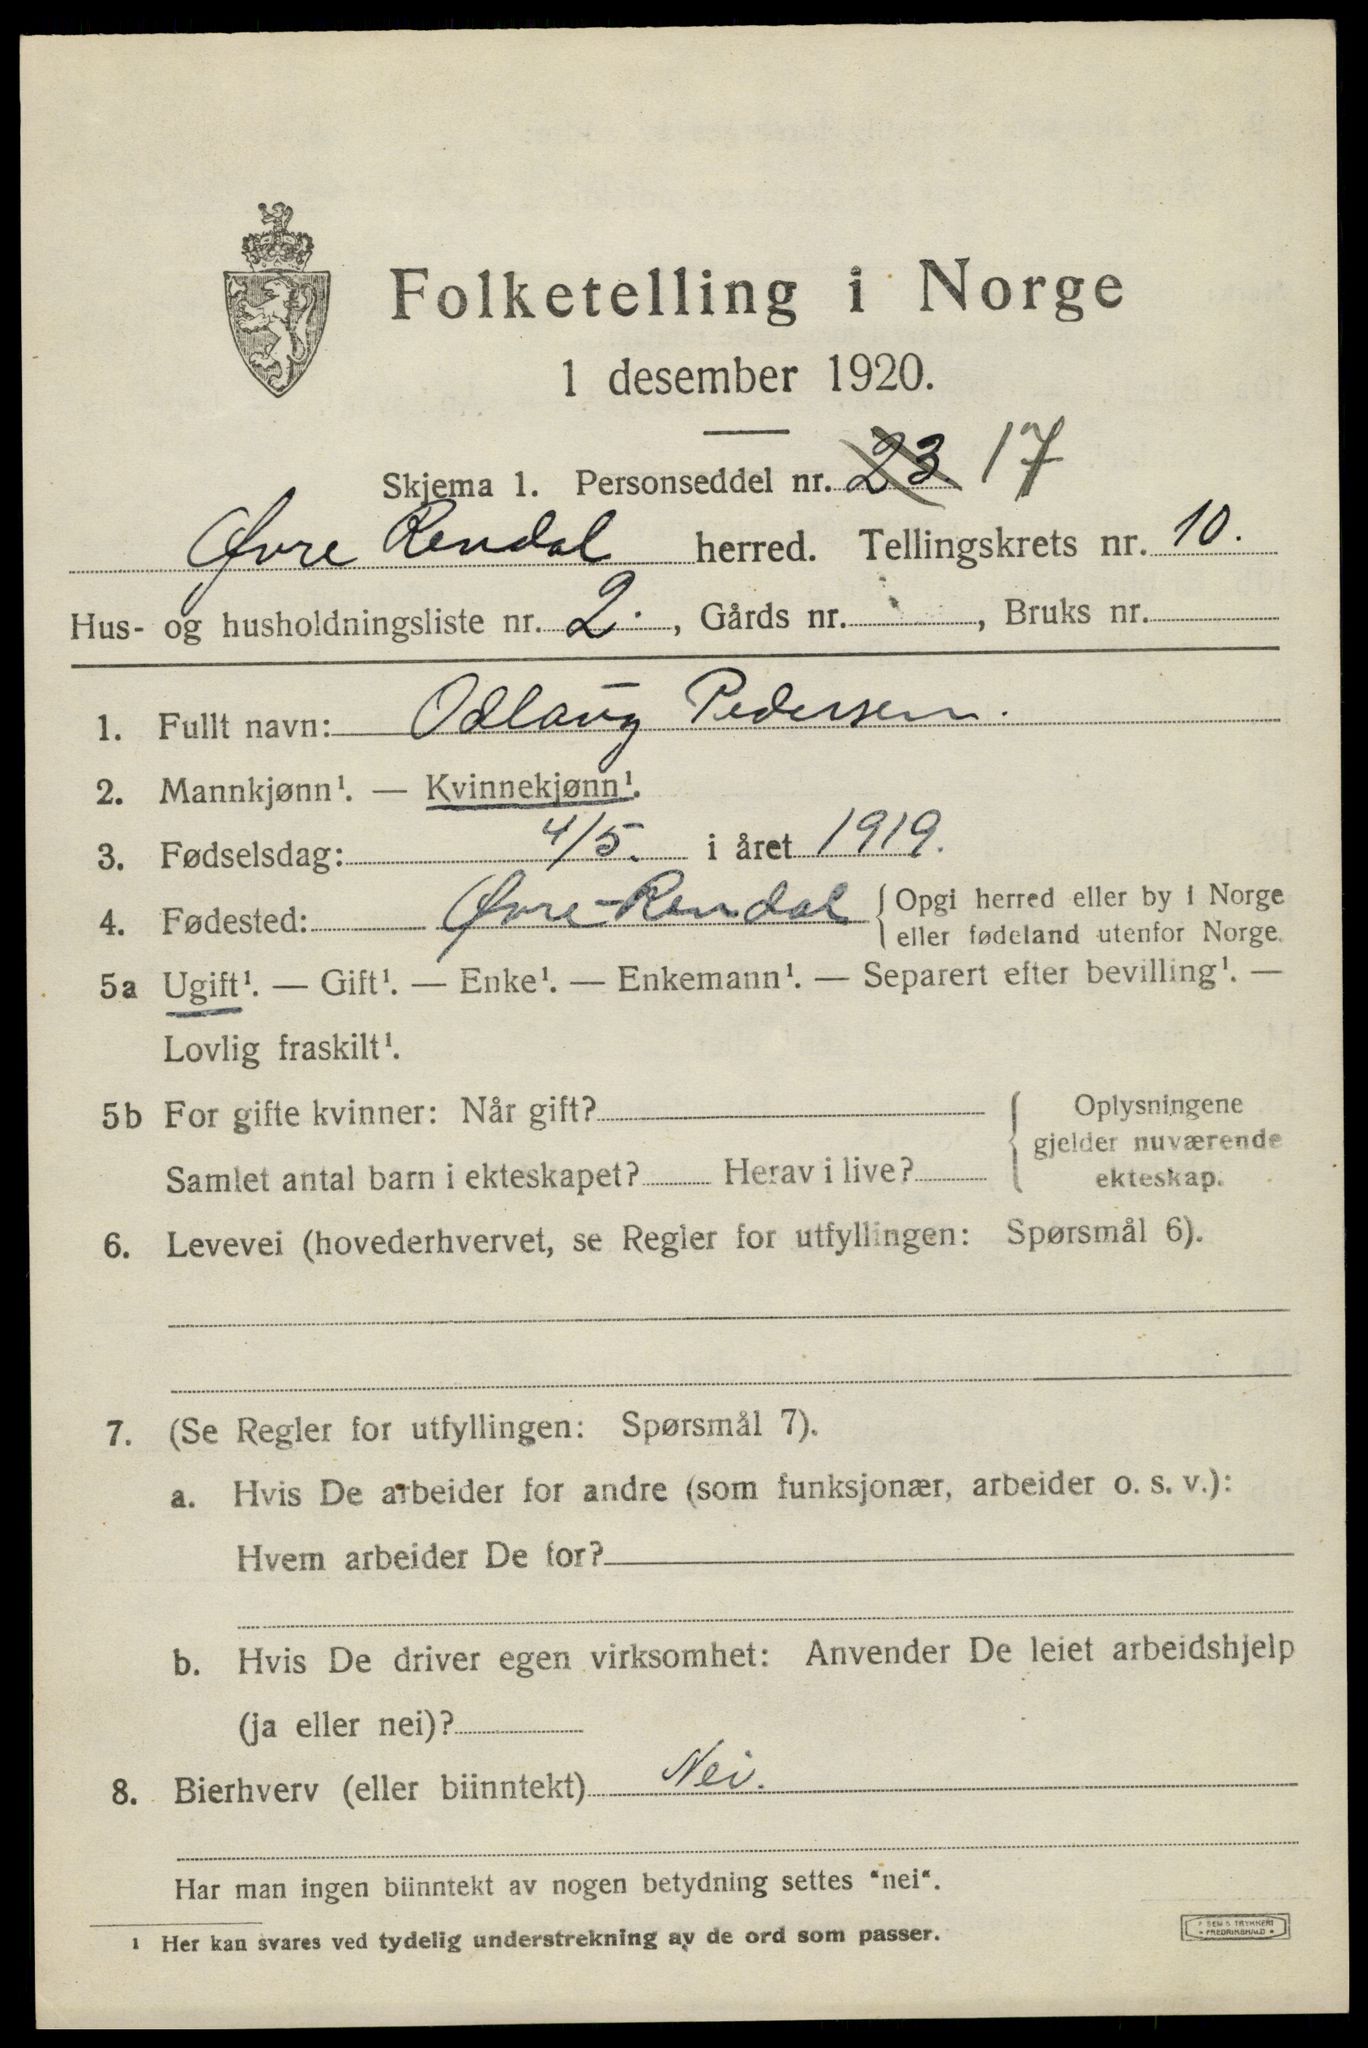 Folketelling i Norge
1 desember 1920.
Skjema 1. Personseddel nr. 23 17
Øvre Rendal herred. Tellingskrets nr. 10.
Hus- og husholdningsliste nr. 2. , Gårds nr. , Bruks nr.
1. Fullt navn: Odlaug Pedersen.
2. Mannkjønn¹. — Kvinnekjønn¹.
3. Fødselsdag: 4/5. i året 1919.
4. Fødested: Øvre-Rendal { Opgi herred eller by i Norge
eller fødeland utenfor Norge.
5a Ugift¹. — Gift¹. — Enke¹. — Enkemann¹. — Separert efter bevilling¹. —
Lovlig fraskilt¹.
5b For gifte kvinner: Når gift?
Samlet antal barn i ekteskapet? Herav i live?
{ Oplysningene
gjelder nuværende
ekteskap.
6. Levevei (hovederhvervet, se Regler for utfyllingen: Spørsmål 6).
7. (Se Regler for utfyllingen: Spørsmål 7).
a. Hvis De arbeider for andre (som funksjonær, arbeider o. s. v.):
Hvem arbeider De for?
b. Hvis De driver egen virksomhet: Anvender De leiet arbeidshjelp
(ja eller nei)?
8. Bierhverv (eller biinntekt) Nei.
Har man ingen biinntekt av nogen betydning settes "nei".
¹ Her kan svares ved tydelig understrekning av de ord som passer.
SEM & TRYKKERI
FREDRIKSHALD